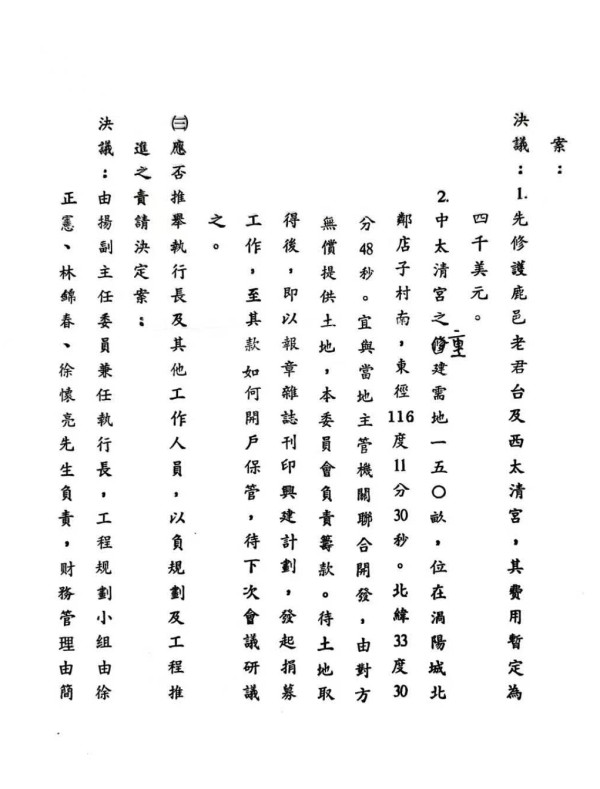 案：
決議：1.先修護鹿邑老君台及西太清宮，其費用暫定為
四千美元。
2.中太清宮之修建需地一五〇畝，位在渦陽城北
重
鄭店子村南，東徑116度11分30秒。北緯33度30
分48秒。宜與當地主管機關聯合開發，由對方
無償提供土地，本委員會負責籌款。待土地取
得後，即以報章雜誌刊印興建計劃，發起捐募
工作，至其款如何開戶保管，待下次會議研議
之。
㈢應否推舉執行長及其他工作人員，以負規劃及工程推
進之責請決定案：
決議：由揚副主任委員兼任執行長，工程規劃小組由徐
正憲、林錦春、徐懷亮先生負責，財務管理由簡